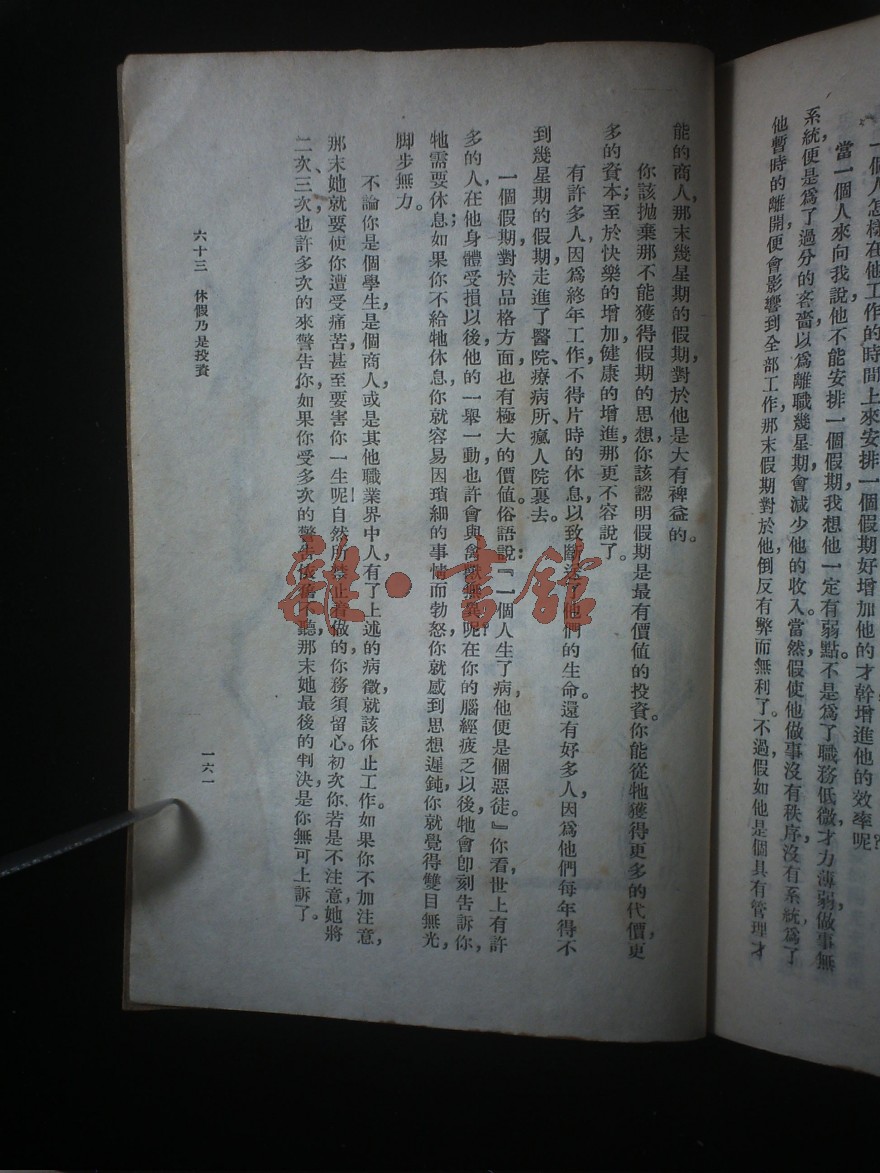 一個人怎樣在他工作的時間上來安排一個假期好增加他的才幹增進他的效率呢?
當一個人來向我說,他不能安排一個假期,我想他一定有弱點。不是爲了職務低微,才力薄弱,做事無
系統,便是爲了過分的吝嗇,以爲離職幾星期,會減少他的收入。當然,假使他做事沒有秩序,沒有系統,爲了
他暫時的離開,便會影響到全部工作,那末假期對於他,倒反有弊而無利了。不過,假如他是個具有管理才
能的商人,那末幾星期的假期,對於他是大有裨益的。
你該拋棄那不能獲得假期的思想,你該認明假期是最有價值的投資。你能從牠獲得更多的代價,更
多的資本;至於快樂的增加,健康的增進,那更不容說了。
有許多人,因爲終年工作,不得片時的休息,以致斷送了他們的生命。還有好多人,因爲他們每年得不
到幾星期的假期,走進了醫院、療病所、瘋人院裏去。
一個假期,對於品格方面,也有極大的價值。俗語說:『一個人生了病,他便是個惡徒。』你看世上有許
多的人,在他身體受損以後,他的一舉一動,也許會與禽獸無異呢?在你的腦經疲乏以後,牠會卽刻告訴你,
牠需要休息;如果你不給牠休息,你就容易因瑣細的事情而勃怒,你就感到思想遲鈍,你就覺得雙目無光,
脚步無力。
不論你是個學生,是個商人,或是其他職業界中人,有了上述的病徵,就該休止工作。如果你不加注意,
那末,她就要使你遭受痛苦,甚至要害你一生呢!自然所禁止着做的,你務須留心。初次你若是不注意,她將
二次、三次,也許多次的來警告你,如果你受多次的警告依舊不聽,那末她最後的判決,是你無可上訴了。
六十三 休假乃是投資
一六一
雜·書館